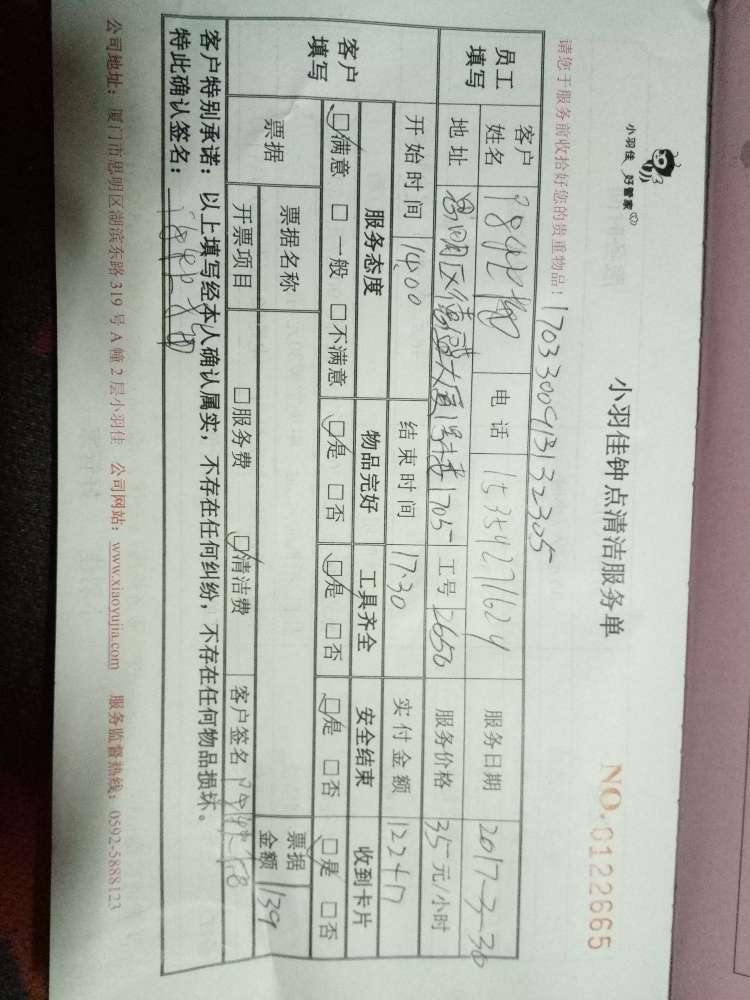 小羽佳 好管家
小羽佳钟点清洁服务单
NO.0122665
请您于服务前收拾好您的贵重物品!
1703300913132305
员工填写
客户姓名 电话 15354271624 服务日期 2017-3-30
地址 思明区 大厦 1705 工号 2650 服务价格 35元/小时
客户填写
开始时间 14:00 结束时间 17:30 实付金额
服务态度 物品完好 工具齐全 安全结束 收到卡片
□满意 □一般 □不满意 □是 □否 □是 □否 □是 □否 □是 □否
票据 票据名称 票据金额 139
开票项目 □服务费 □清洁费 客户签名
客户特别承诺:以上填写经本人确认属实,不存在任何纠纷,不存在任何物品损坏。
特此确认签名:
公司地址:厦门市思明区湖滨东路319号A幢2层小羽佳 公司网站:www.xiaoyujia.com 服务监督热线:0592-5888123